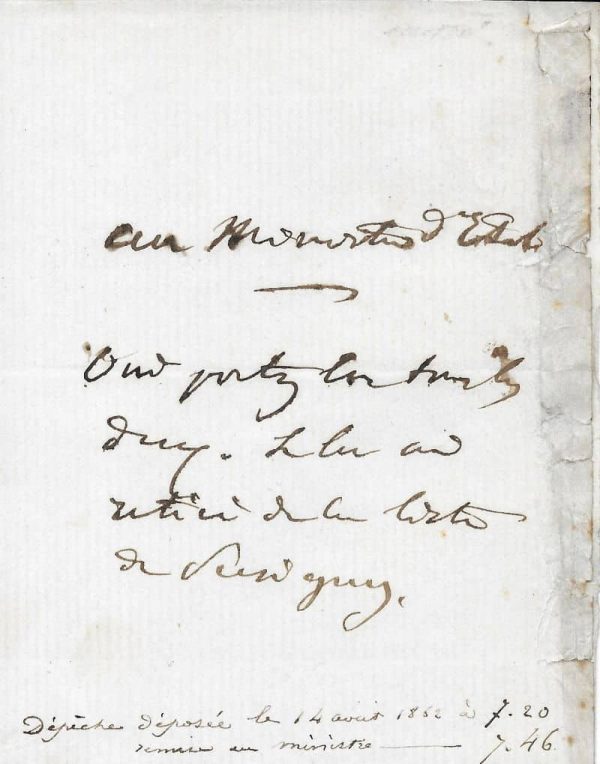 au Ministre d'Etat
Oui portez les tous les
deux. Je les ai
retiré de la liste
de Persigny.
Dépêche déposée le 14 août 1862 à 7.20
remise au ministre — 7.46